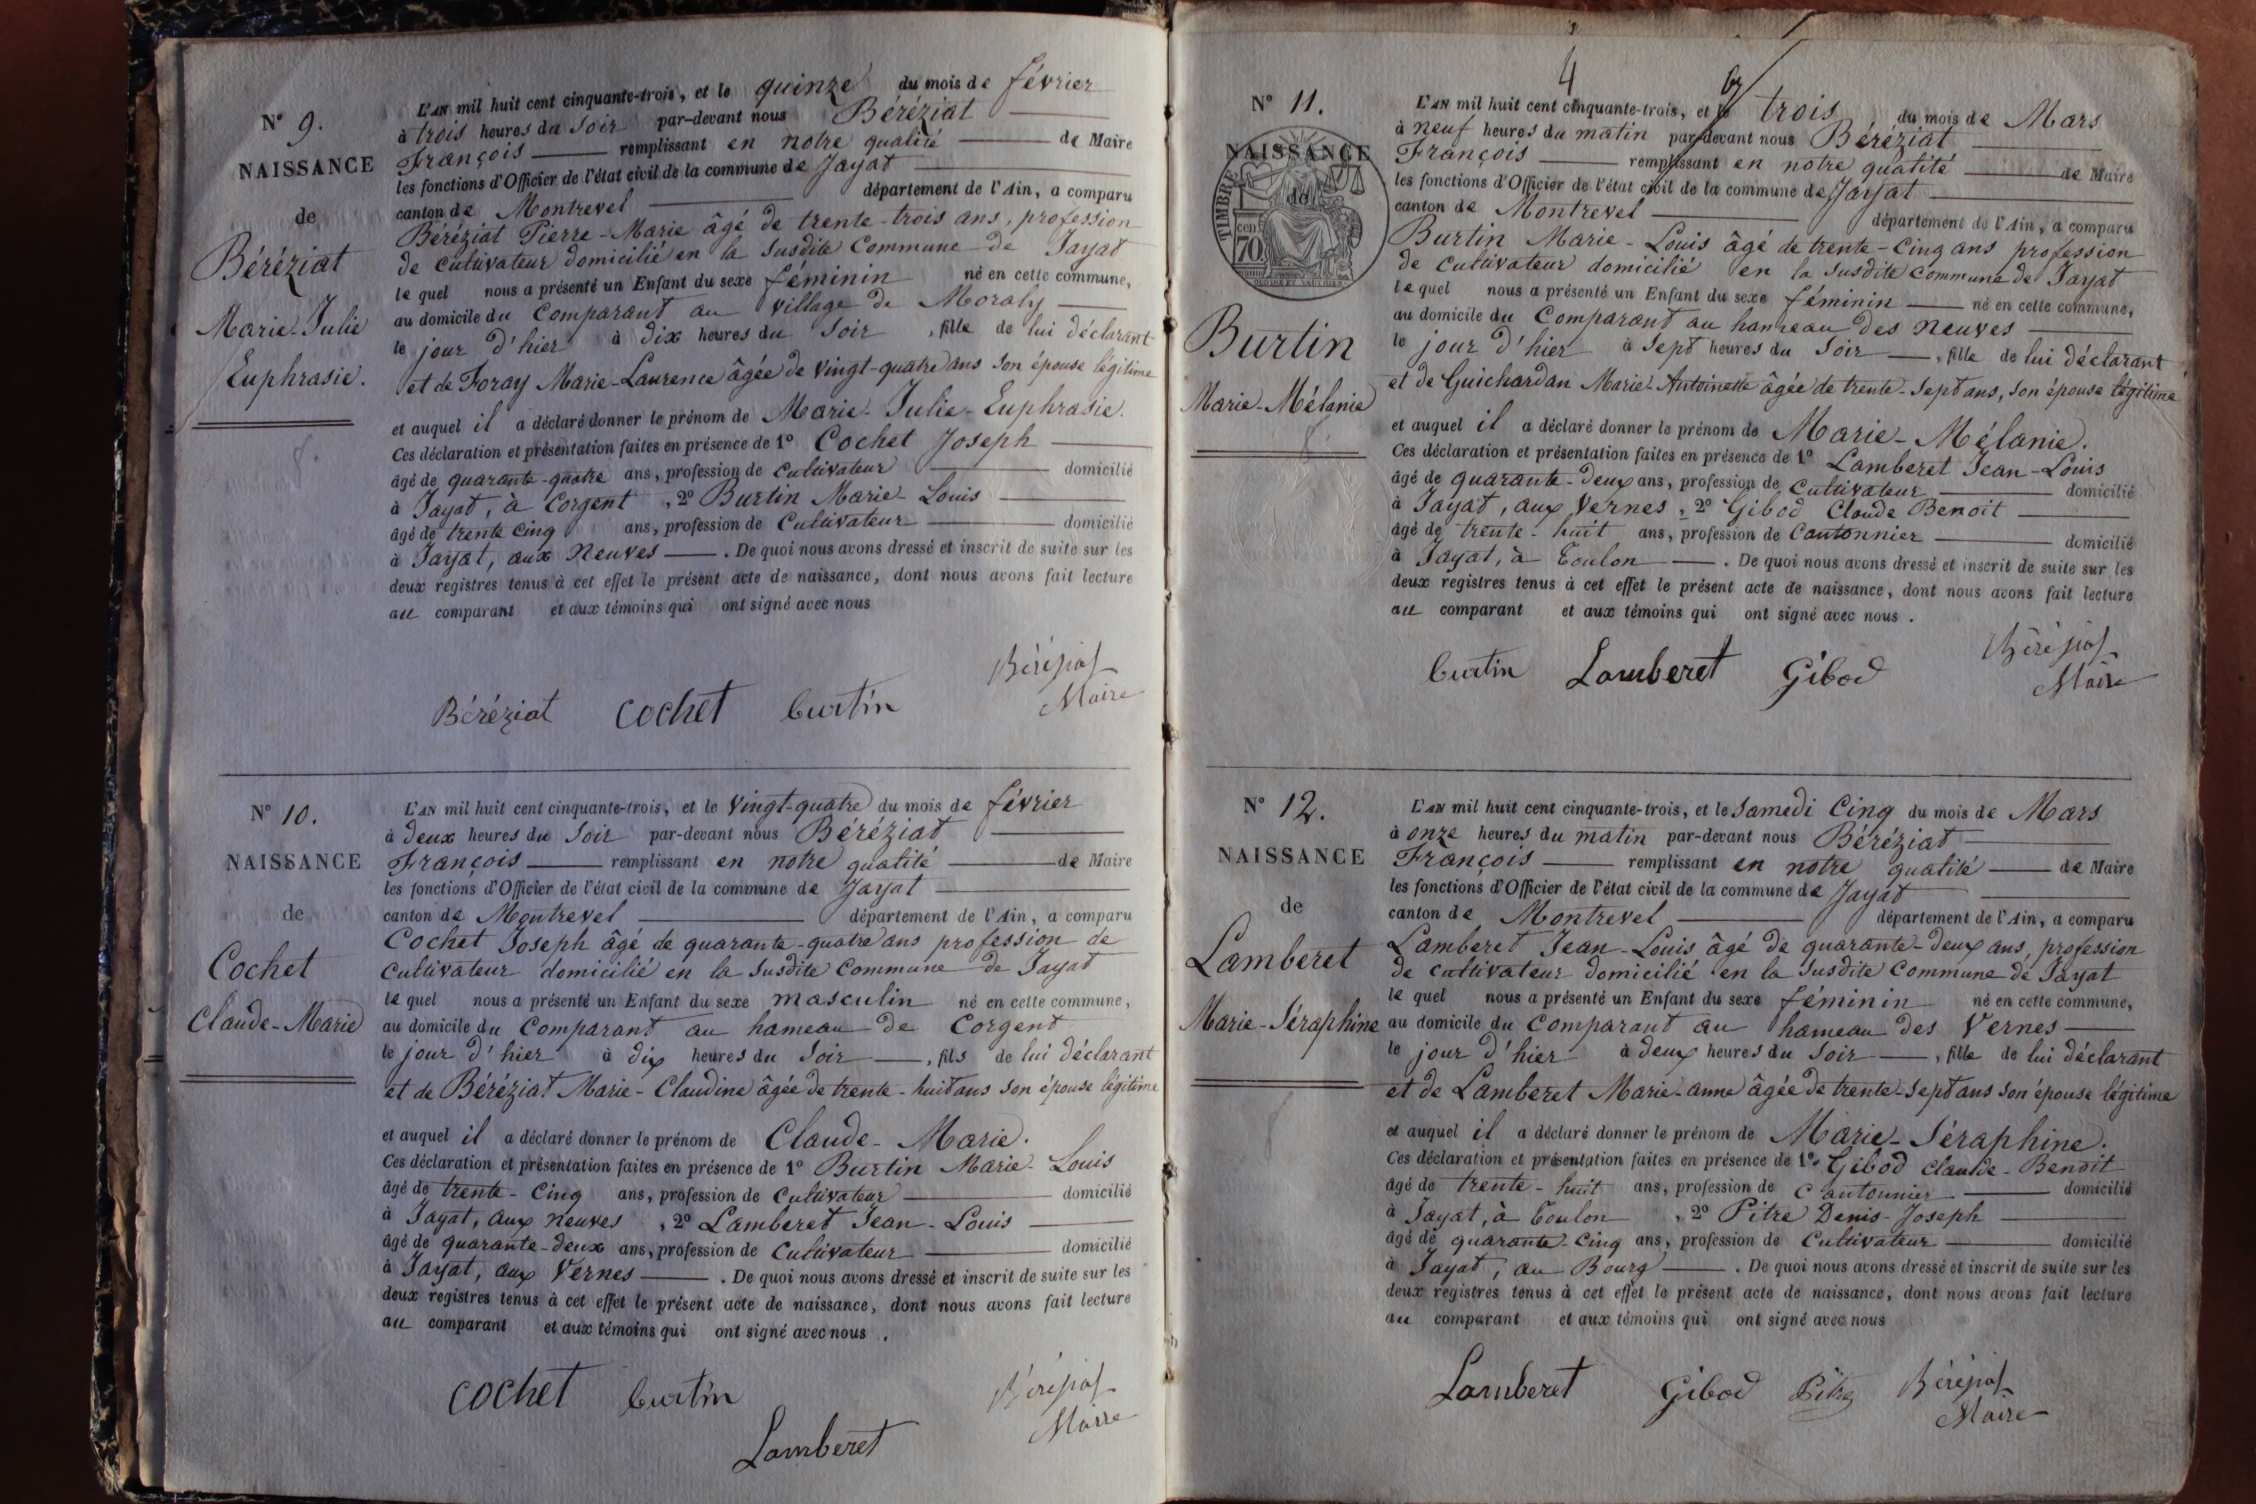 N° 9.
NAISSANCE
de
Béréziat
Marie-Julie
Euphrasie.
L'AN mil huit cent cinquante-trois, et le quinze du mois de février
à trois heures du soir par-devant nous Béréziat
François remplissant en notre qualité de Maire
les fonctions d'Officier de l'état civil de la commune de Jayat
canton de Montrevel département de l'Ain, a comparu
Béréziat Pierre-Marie âgé de trente-trois ans, profession
de cultivateur domicilié en la susdite Commune de Jayat
le quel nous a présenté un Enfant du sexe féminin né en cette commune,
au domicile du Comparant au village de Moraly
le jour d'hier à dix heures du soir, fille de lui déclarant
et de Foray Marie-Laurence âgée de vingt-quatre ans son épouse légitime
et auquel il a déclaré donner le prénom de Marie-Julie-Euphrasie.
Ces déclaration et présentation faites en présence de 1° Cochet Joseph
âgé de quarante-quatre ans, profession de cultivateur domicilié
à Jayat, à Corgent, 2° Burtin Marie-Louis
âgé de trente cinq ans, profession de Cultivateur domicilié
à Jayat, aux Neuves. De quoi nous avons dressé et inscrit de suite sur les
deux registres tenus à cet effet le présent acte de naissance, dont nous avons fait lecture
au comparant et aux témoins qui ont signé avec nous
Béréziat Maire
Béréziat Cochet Burtin
N° 10.
NAISSANCE
de
Cochet
Claude-Marie
L'AN mil huit cent cinquante-trois, et le vingt-quatre du mois de février
à deux heures du soir par-devant nous Béréziat
François remplissant en notre qualité de Maire
les fonctions d'Officier de l'état civil de la commune de Jayat
canton de Montrevel département de l'Ain, a comparu
Cochet Joseph âgé de quarante-quatre ans profession de
cultivateur domicilié en la susdite Commune de Jayat
le quel nous a présenté un Enfant du sexe masculin né en cette commune,
au domicile du Comparant au hameau de Corgent
le jour d'hier à dix heures du soir, fils de lui déclarant
et de Béréziat Marie-Claudine âgée de trente-huit ans son épouse légitime
et auquel il a déclaré donner le prénom de Claude-Marie.
Ces déclaration et présentation faites en présence de 1° Burtin Marie-Louis
âgé de trente-cinq ans, profession de Cultivateur domicilié
à Jayat, aux neuves, 2° Lamberet Jean-Louis
âgé de quarante-deux ans, profession de Cultivateur domicilié
à Jayat, aux Vernes. De quoi nous avons dressé et inscrit de suite sur les
deux registres tenus à cet effet le présent acte de naissance, dont nous avons fait lecture
au comparant et aux témoins qui ont signé avec nous.
Cochet Burtin Béréziat Maire
Lamberet
4
N° 11.
NAISSANCE
de
TIMBRE
70 cen
Burtin
Marie-Mélanie
L'AN mil huit cent cinquante-trois, et le trois du mois de Mars
à neuf heures du matin par-devant nous Béréziat
François remplissant en notre qualité de Maire
les fonctions d'Officier de l'état civil de la commune de Jayat
canton de Montrevel département de l'Ain, a comparu
Burtin Marie-Louis âgé de trente-cinq ans profession
de cultivateur domicilié en la susdite commune de Jayat
le quel nous a présenté un Enfant du sexe féminin né en cette commune,
au domicile du Comparant au hameau des Neuves
le jour d'hier à sept heures du soir, fille de lui déclarant
et de Guichardan Marie-Antoinette âgée de trente-sept ans, son épouse légitime
et auquel il a déclaré donner le prénom de Marie-Mélanie.
Ces déclaration et présentation faites en présence de 1° Lamberet Jean-Louis
âgé de quarante-deux ans, profession de Cultivateur domicilié
à Jayat, aux Vernes, 2° Gibod Claude Benoit
âgé de trente-huit ans, profession de Cantonnier domicilié
à Jayat, à Toulon. De quoi nous avons dressé et inscrit de suite sur les
deux registres tenus à cet effet le présent acte de naissance, dont nous avons fait lecture
au comparant et aux témoins qui ont signé avec nous.
Burtin Lamberet Gibod Béréziat Maire
N° 12.
NAISSANCE
de
Lamberet
Marie-Séraphine
L'AN mil huit cent cinquante-trois, et le samedi cinq du mois de Mars
à onze heures du matin par-devant nous Béréziat
François remplissant en notre qualité de Maire
les fonctions d'Officier de l'état civil de la commune de Jayat
canton de Montrevel département de l'Ain, a comparu
Lamberet Jean-Louis âgé de quarante-deux ans, profession
de cultivateur domicilié en la susdite commune de Jayat
le quel nous a présenté un Enfant du sexe féminin né en cette commune,
au domicile du Comparant au hameau des Vernes
le jour d'hier à deux heures du soir, fille de lui déclarant
et de Lamberet Marie-anne âgée de trente-sept ans son épouse légitime
et auquel il a déclaré donner le prénom de Marie-Séraphine.
Ces déclaration et présentation faites en présence de 1° Gibod Claude-Benoit
âgé de trente-huit ans, profession de Cantonnier domicilié
à Jayat, à Toulon, 2° Pitre Denis-Joseph
âgé de quarante-cinq ans, profession de Cultivateur domicilié
à Jayat, au Bourg. De quoi nous avons dressé et inscrit de suite sur les
deux registres tenus à cet effet le présent acte de naissance, dont nous avons fait lecture
au comparant et aux témoins qui ont signé avec nous
Lamberet Gibod Pitre Béréziat Maire